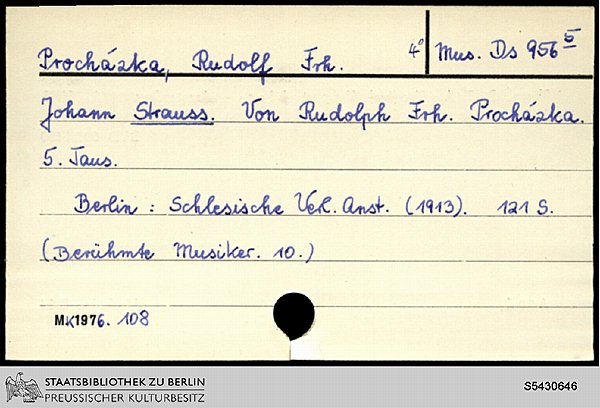 Procházka, Rudolf Frh. 4° Mus. Ds 956 5
Johann Strauss. Von Rudolph Frh. Procházka.
5. Taus.
Berlin : Schlesische Verl. Anst. (1913). 121 S.
(Berühmte Musiker. 10.)
MK1976. 108
STAATSBIBLIOTHEK ZU BERLIN
PREUSSISCHER KULTURBESITZ
S5430646